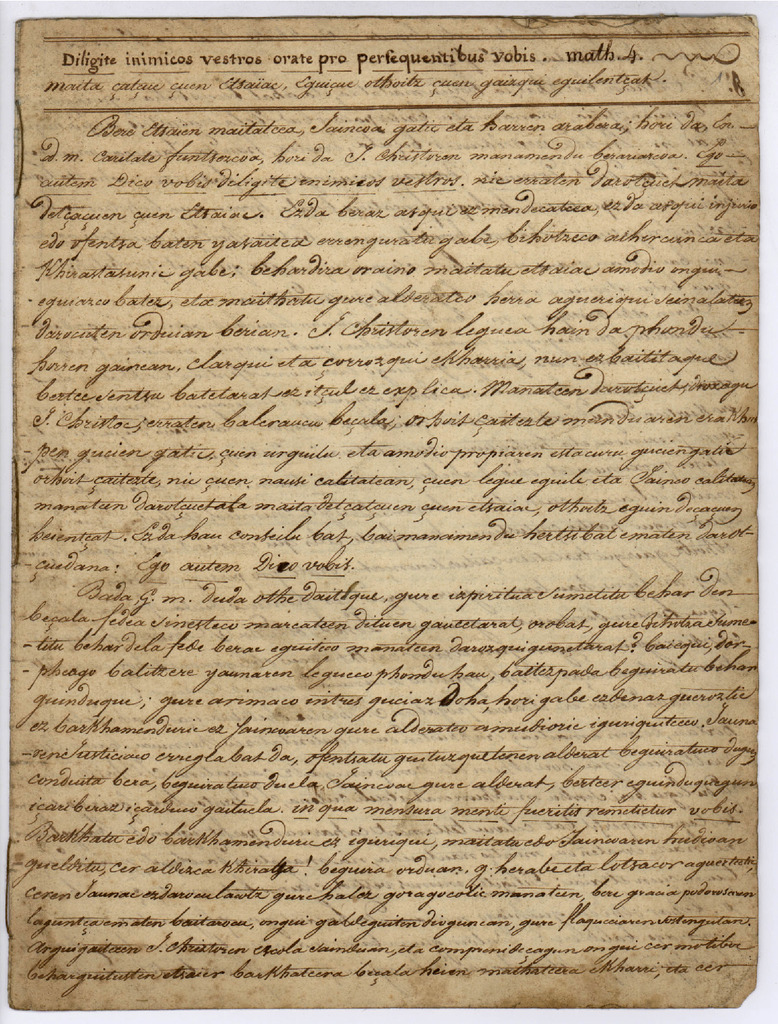 Diligite inimicos vestros orate pro persequentibus vobis. math. 4.
maita çatçue çuen Etsaïac, Eguiçue othoitz çuen gaizqui eguilentçat.
Bere Etsaien maitatcea, Jaincoa gatic eta harren arabera; hori da, En-
a. m. Caritate funtsezcoa, hori da J. Christoren manamendu berariazcoa. Ego
autem Dico vobis diligite inimicos vestros. nic erraten darotçuet maita
detçaçuen çuen Etsaiac. Ezda beraz asqui ez mendecatcea, ezda asqui injurio
edo ofentsa baten yasaitea errenguratu gabe, bihotzeco
Khirastasunic gabe; behardira oraino maitatu etsaiac amodio ongui-
eguiazco batez, eta gure alderaco herra
darocuten orduian berian. J. Christoren leguea hain da phondu
horren gainean, Clarqui eta corrozqui ekharria, nun ez baititaque
bertce sentsu batetarat ez itçul ez explica. Manatcen darotçuet, diozagu
J. Christoc, erraten balerauçu beçala, orhoit çaitezte
çuen gucien gatic, çuen urguilu eta amodio propiaren gucien gatic
orhoit çaitezte, nic çuen nausi calitatean, çuen legue eguile eta Jainco calitatean
manatcen darotçuetala maita detçatçuen çuen etsaiac, othoitz eguin deçaçuen
heientçat. Ezda hau conseilu bat, bai manamendu hertsi bat ematen darot-
-çuedana: Ego autem Dico vobis.
Bada G. m. duda othe daiteque, gure izpiritua sumetitu behar den
beçala fedea sinesteco marcatcen dituen gauçetarat, orobat, gure bihotza sume-
-titu behar dela fede berac eguiteco manatcen darozquigunetarat? baicequi, dor-
-pheago balitzere yaunaren legueco phondu hau, battezpada beguiratu behar
guinduque; gure arimaco intres guciaz Doha, hori gabe ezdenaz gueroztic
ez barkhamenduric ez Jaincoaren gure alderaco amudioric iguriquiteco. Jauna-
-ren Justiciaco erregla bat da, ofentsatu gaituzquetenen alderat beguiratuco dugun
conduita bera, beguiratuco duela Jaincoac gure alderat, bertcer eguin duquegun
içariberaz içarduco gaituela. in qua mensura mensi fueritis remetietur vobis.
Barkhatu edo barkhamenduric ez iguriqui, maitatu edo Jaincoaren hudioan
guelditu, cer aldizca Khiratsa! beguira orduan, g. herabe eta lotsa cor
ceren Jaunac ezdaroculautz gure halez goragocolic manatcen, bere gracia podorosaren
laguntça ematen baitarocu, ongui gabe eguiten dioguncan, gure flaqueciaren sostengutan.
Argui gaitecen J. Christoren Escola Sainduan, eta compreni deçagun ongui cer motibu
behar guituzten etsaier barkhatcera beçala heien maithatcera ekharri, eta cer